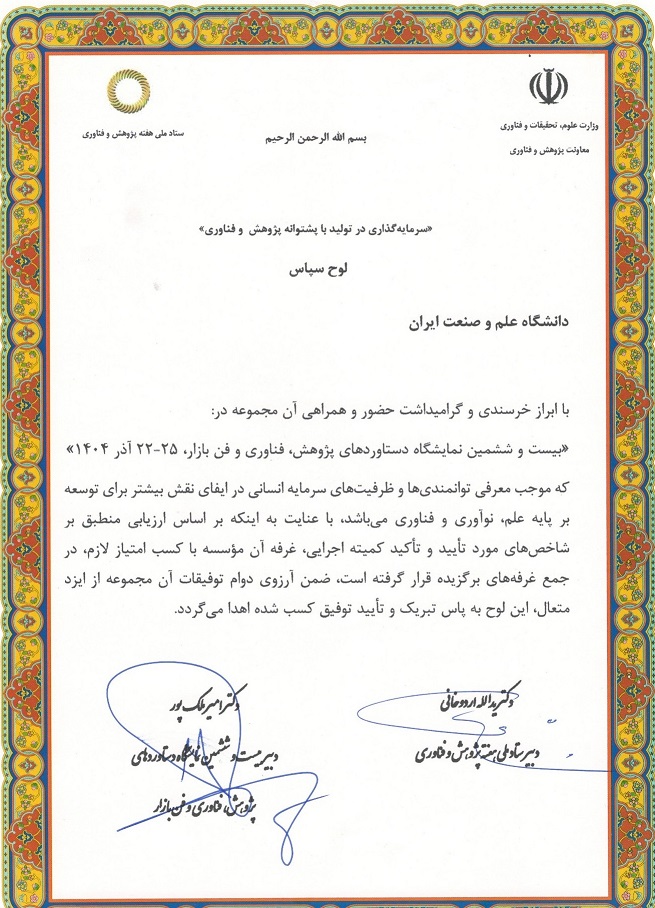 وزارت علوم، تحقیقات و فناوری
معاونت پژوهش و فناوری
ستاد ملی هفته پژوهش و فناوری
بسم الله الرحمن الرحیم
«سرمایه‌گذاری در تولید با پشتوانه پژوهش و فناوری»
لوح سپاس
دانشگاه علم و صنعت ایران
با ابراز خرسندی و گرامیداشت حضور و همراهی آن مجموعه در:
«بیست و ششمین نمایشگاه دستاوردهای پژوهش، فناوری و فن بازار، ۲۵-۲۲ آذر ۱۴۰۴»
که موجب معرفی توانمندی‌ها و ظرفیت‌های سرمایه انسانی در ایفای نقش بیشتر برای توسعه
بر پایه علم، نوآوری و فناوری می‌باشد، با عنایت به اینکه بر اساس ارزیابی منطبق بر
شاخص‌های مورد تأیید و تأکید کمیته اجرایی، غرفه آن مؤسسه با کسب امتیاز لازم، در
جمع غرفه‌های برگزیده قرار گرفته است، ضمن آرزوی دوام توفیقات آن مجموعه از ایزد
متعال، این لوح به پاس تبریک و تأیید توفیق کسب شده اهدا می‌گردد.
دکتر یدالله اردوخانی
دبیر ستاد ملی هفته پژوهش و فناوری
دکتر امیر ملک پور
دبیر بیست و ششمین نمایشگاه دستاوردهای
پژوهش، فناوری و فن بازار